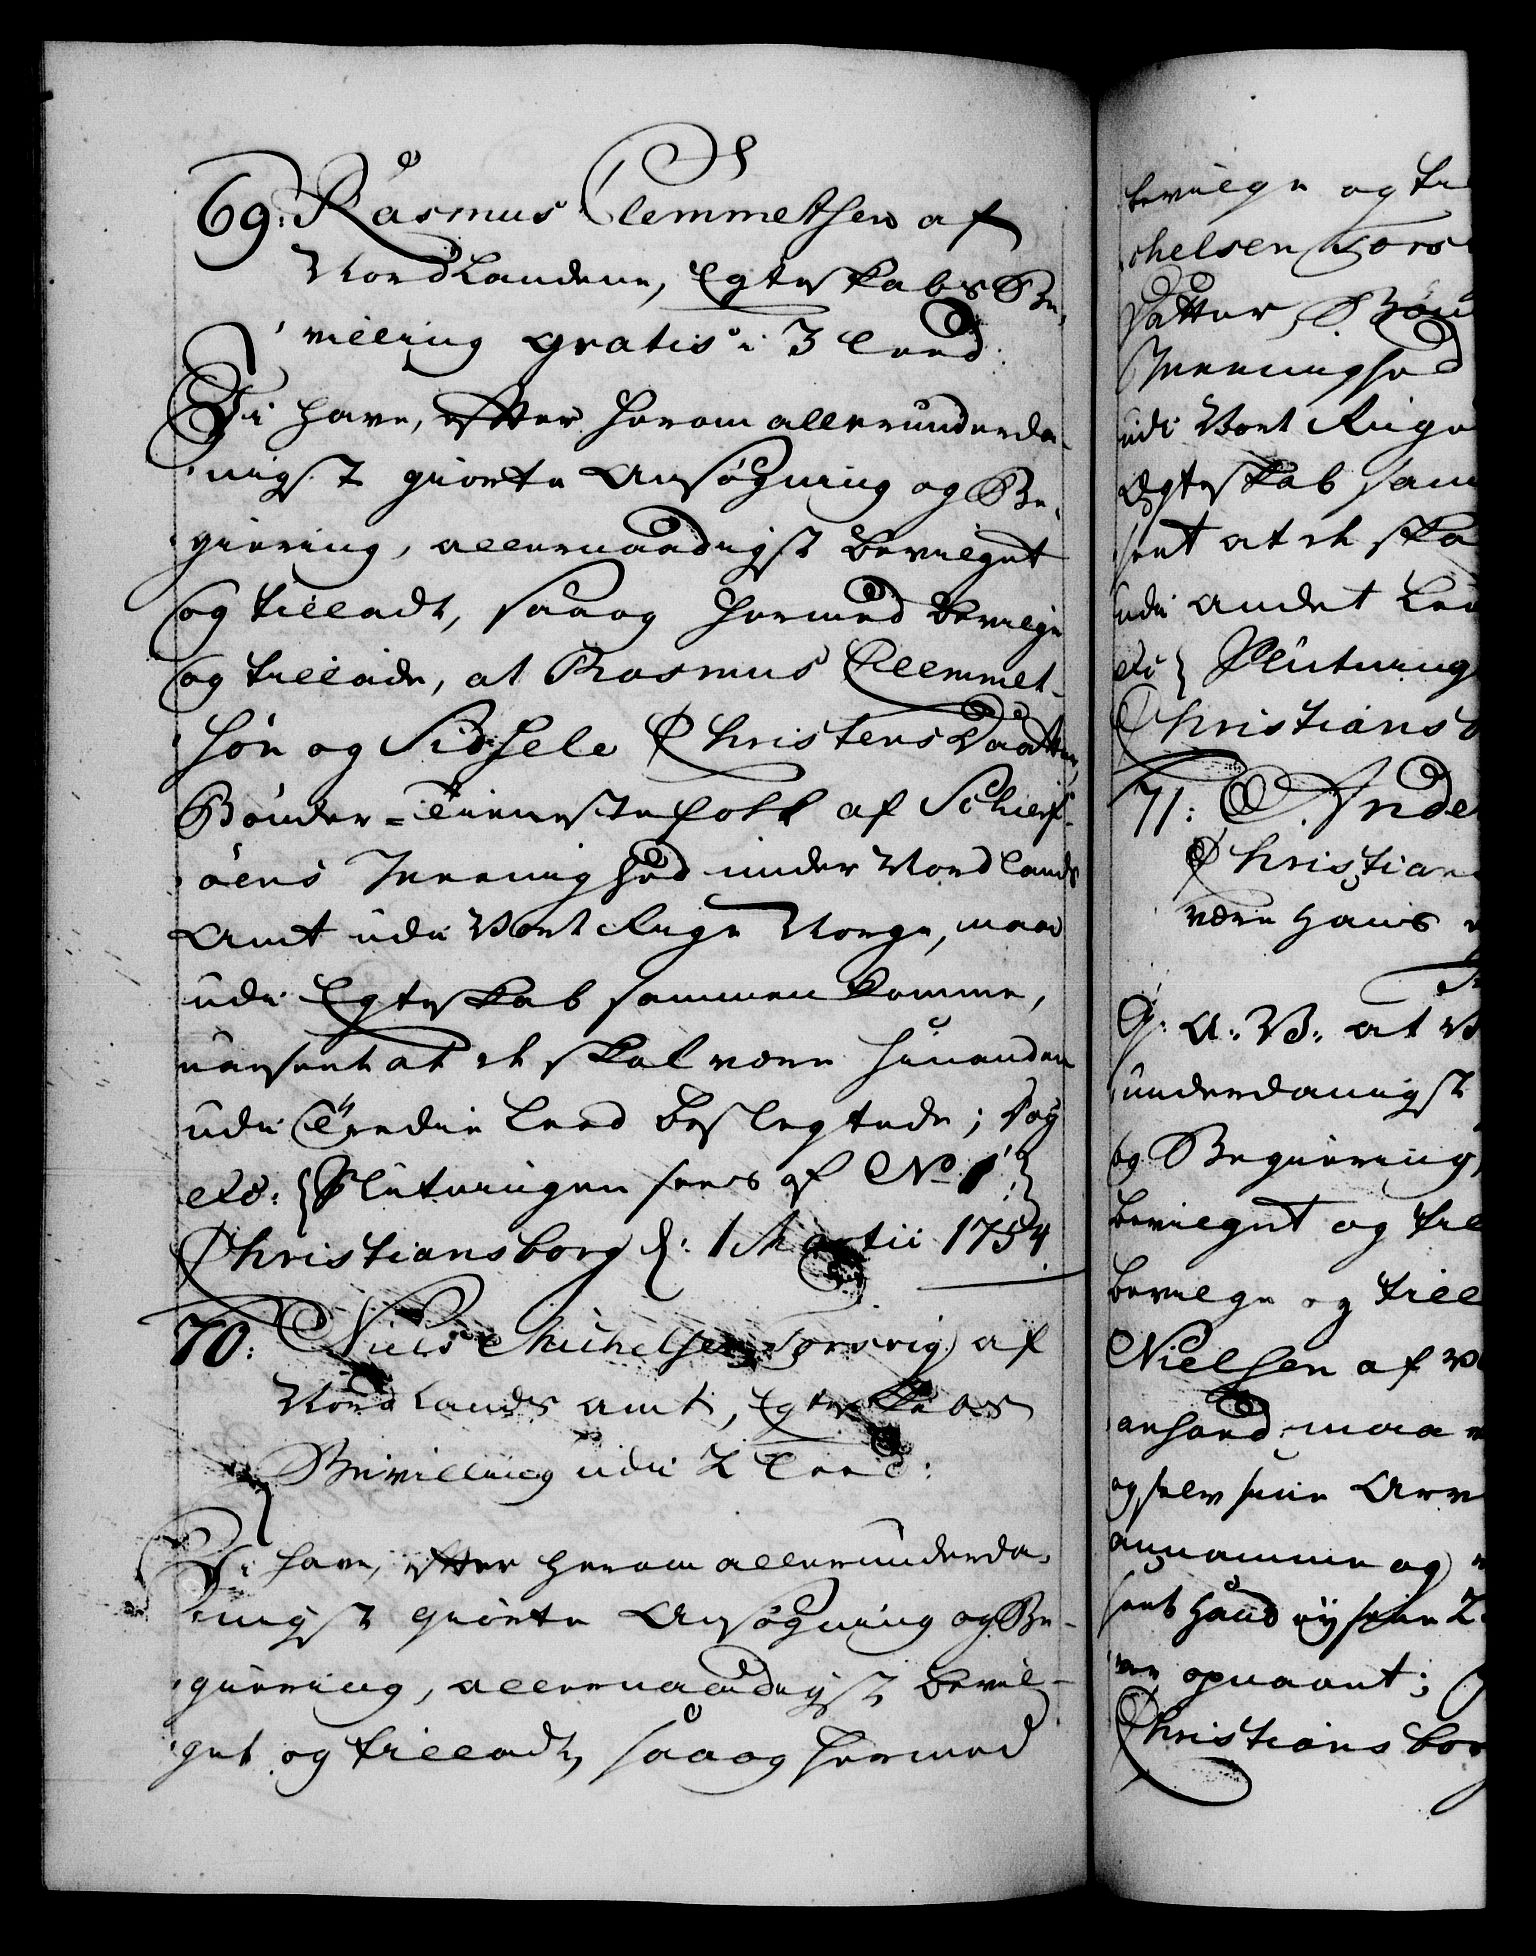 69: Rasmus Clemmethsen af
Nordlandene, Egteskabs Be,
villing gratis i 3 Leed:
Vi have, efter herom allerunderda-
nigst giorte Ansøgning og Be,
giering, allernaadigst bevilget
og tilladt, saa og hermed bevilge
og tillade, at Rasmus Clemmet-
søn og Sidsele Christens Daatter,
Bønder-Tienestefolk af Schierf-
øens Menninghed under Nordlands
Amt udi Vort Rige Norge, maa
udi Egteskab sammenkomme,
uanseet at de skal være hinanden
udi Tredie Leed beslegtede; Dog
etc: {Slutningen sees af No 1}
Christiansborg d: 1 Martii 1754.
70: Niels Michelsen Torsvig af
Nordlands amt, Egteskabs
Bevilling udi 2 Leed:
Vi have, efter herom allerunderda,
nigst giorte Ansøgning og Be-
giering, allernaadigst bevil-
get og tilladt, saa og hermed
bevilge og til
chelsen Tors
Datter, Bøn
Menninghed
udi Vort Rige
Egteskab sam
seet at de ska
udi andet Lee
etc { Slutning
Christiansb
71: Ande
Christian
være hans
G: A: V: at V
underdanigst
og Begiering,
bevilget og til
bevilge og till
Nielsen af
anhørd maa
og selv sine Arv
annamme og
sent haand
opnaaet;
Christiansbor